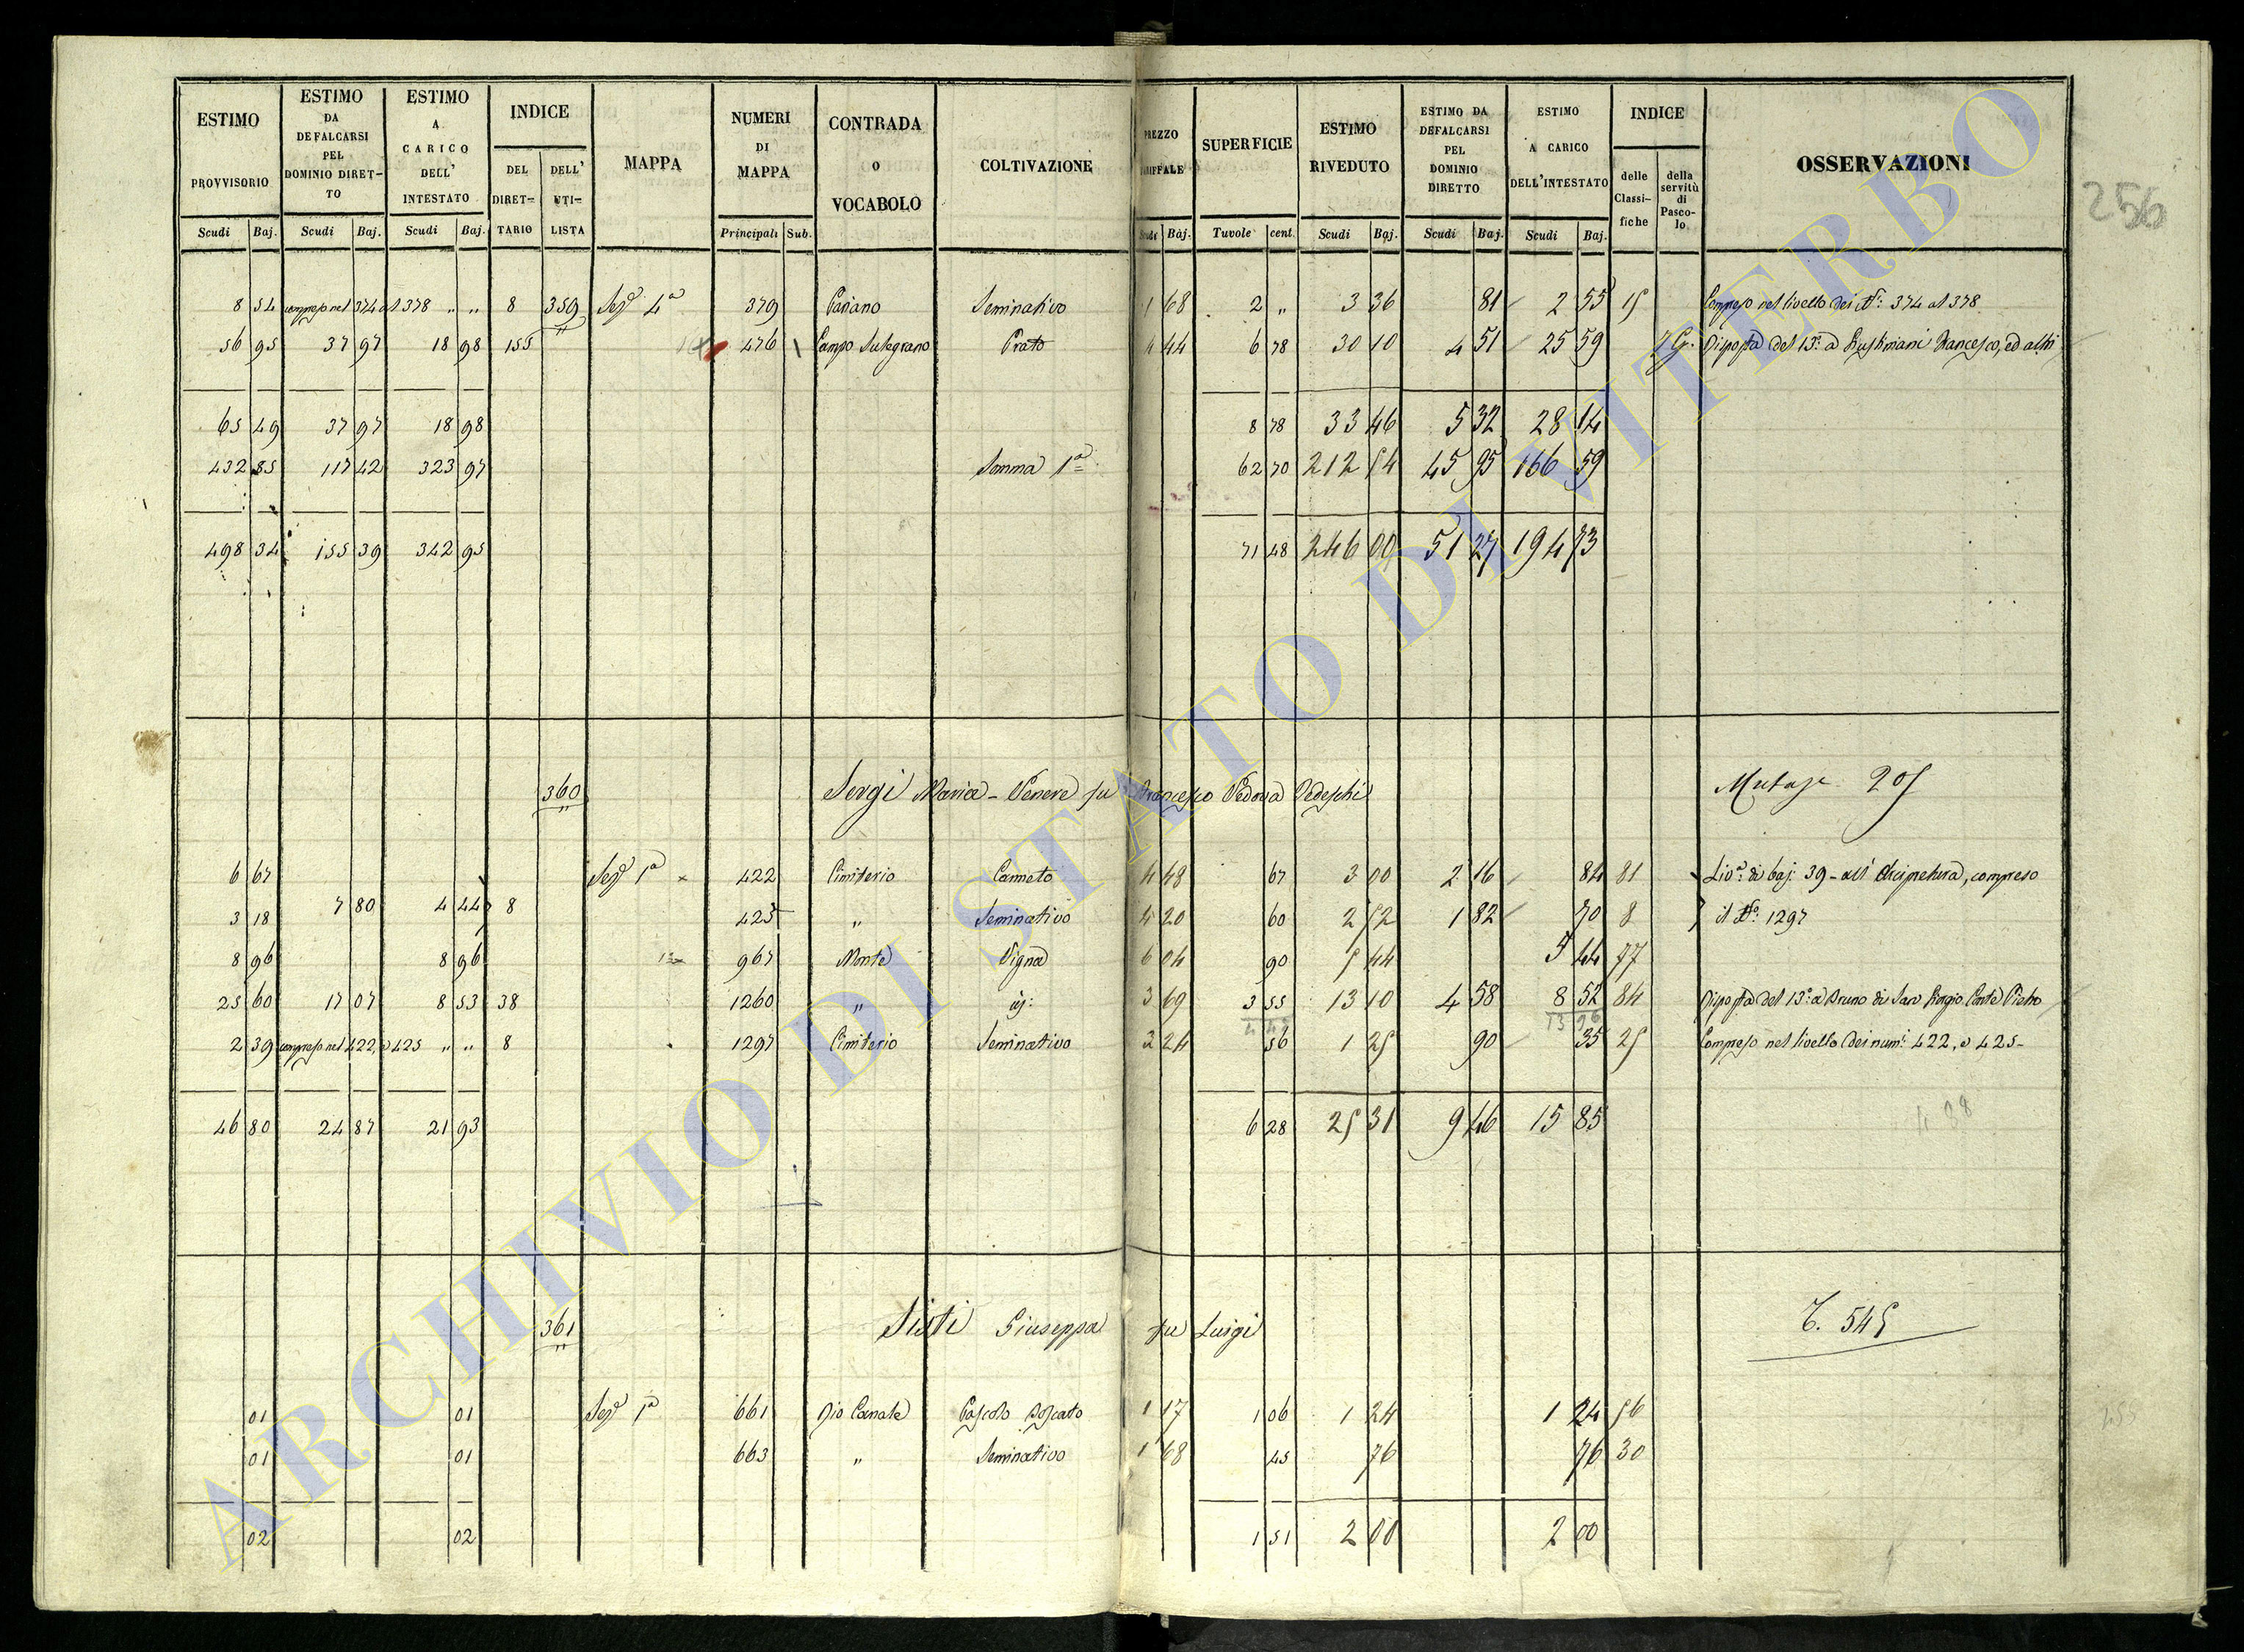 ESTIMO PROVVISORIO Scudi Baj.
ESTIMO DA DEFALCARSI PEL DOMINIO DIRET-TO Scudi Baj.
ESTIMO A CARICO DELL' INTESTATO Scudi Baj.
INDICE DEL DIRET-TARIO DELL' UTI-LISTA
MAPPA
NUMERI DI MAPPA Principali Sub.
CONTRADA o VOCABOLO
COLTIVAZIONE
PREZZO Baj.
SUPERFICIE Tuvole cent.
ESTIMO RIVEDUTO Scudi Baj.
ESTIMO DA DEFALCARSI PEL DOMINIO DIRETTO Scudi Baj.
ESTIMO A CARICO DELL'INTESTATO Scudi Baj.
INDICE delle Classi-fiche della servitù di Pasco-lo
OSSERVAZIONI
256
8 54 compreso nel 374 al 378 " " 8 359 Sez.e 4a 379 Seminativo 1 68 2 " 3 36 81 2 55 15 Compreso nel livello dei N.i 374 al 378
56 95 37 97 18 98 155 476 1 Campo Prato 4 44 6 78 30 10 4 51 25 59 Risposta del 13.o a Francesco, ed altri
65 49 37 97 18 98 8 78 33 46 5 32 28 14
432 85 117 42 323 97 Somma 1a 62 70 212 54 45 95 166 59
498 34 155 39 342 95 71 48 246 00 51 27 194 73
360 Sergi Maria-Venere fu Francesco Vedova Tedeschi 205
6 67 Sez.e 1a 422 Cimiterio Canneto 4 48 67 3 00 2 16 84 81 Liv.o di baj: 39 - all' Arcipretura, compreso
3 18 7 80 4 44 8 425 " Seminativo 4 20 60 2 52 1 82 70 8 il N.o 1297
8 96 8 96 967 Monte Vigna 6 04 90 5 44 5 44 77
25 60 17 07 8 53 38 1260 " id: 3 69 3 55 13 10 4 58 8 52 84 Risposta del 13.o a Bruno di Conte Pietro
2 39 compreso nel 422, e 425 " " 8 1297 Cimiterio Seminativo 2 24 56 1 25 90 35 25 Compreso nel livello dei num.i 422, e 425-
46 80 24 87 21 93 6 28 25 31 9 46 15 85
361 Sisti Giuseppa fu Luigi 545
01 01 Sez.e 1a 661 Rio Canale Pascolo Boscato 1 17 1 06 1 24 1 24 56
01 01 663 " Seminativo 1 68 45 76 76 30
02 02 1 51 2 00 2 00
ARCHIVIO DI STATO DI VITERBO